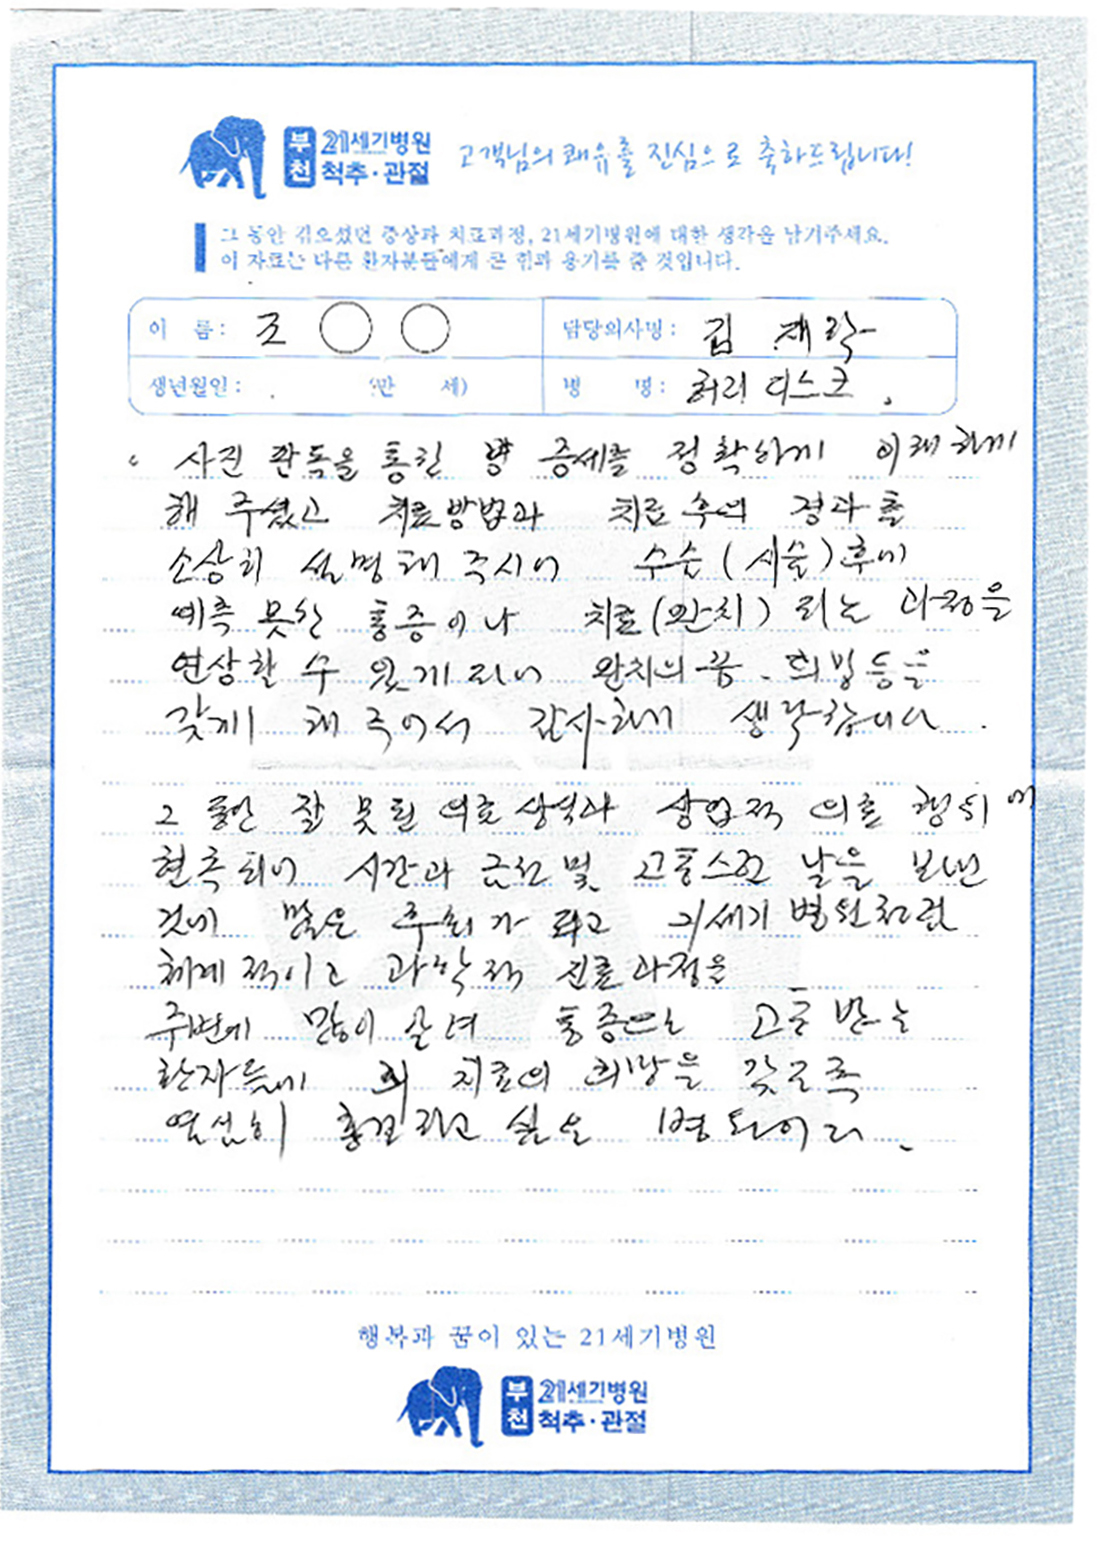 부천 21세기병원 척추·관절
고객님의 쾌유를 진심으로 축하드립니다!
그 동안 겪으셨던 증상과 치료과정, 21세기병원에 대한 생각을 남겨주세요.
이 자료는 다른 환자분들에게 큰 힘과 용기를 줄 것입니다.
이 름: 조 ○ ○
담당의사명: 김 재락
생년월일: . (만 세)
병 명: 허리 디스크.
사진 판독을 통한 병 증세를 정확하게 이해하게
해 주셨고 치료방법과 치료 후의 결과를
소상히 설명해 주시어 수술(시술)후에
예측 못한 통증이나 치료(완치) 되는 과정을
연상할 수 있게 되어 완치의 꿈. 희망등을
갖게 해 주어서 감사하게 생각합니다.
그 동안 잘 못된 의료 상식과 상업적 의료 행위에
현측되어 시간과 금전 및 고통스런 날을 보낸
것에 많은 후회가 되고 21세기 병원처럼
체계적이고 과학적 진료과정을
주변에 많이 알려 통증으로 고통 받는
환자들에 치료의 희망을 갖도록
열심히 홍보하고 싶은
행복과 꿈이 있는 21세기병원
부천 21세기병원 척추·관절